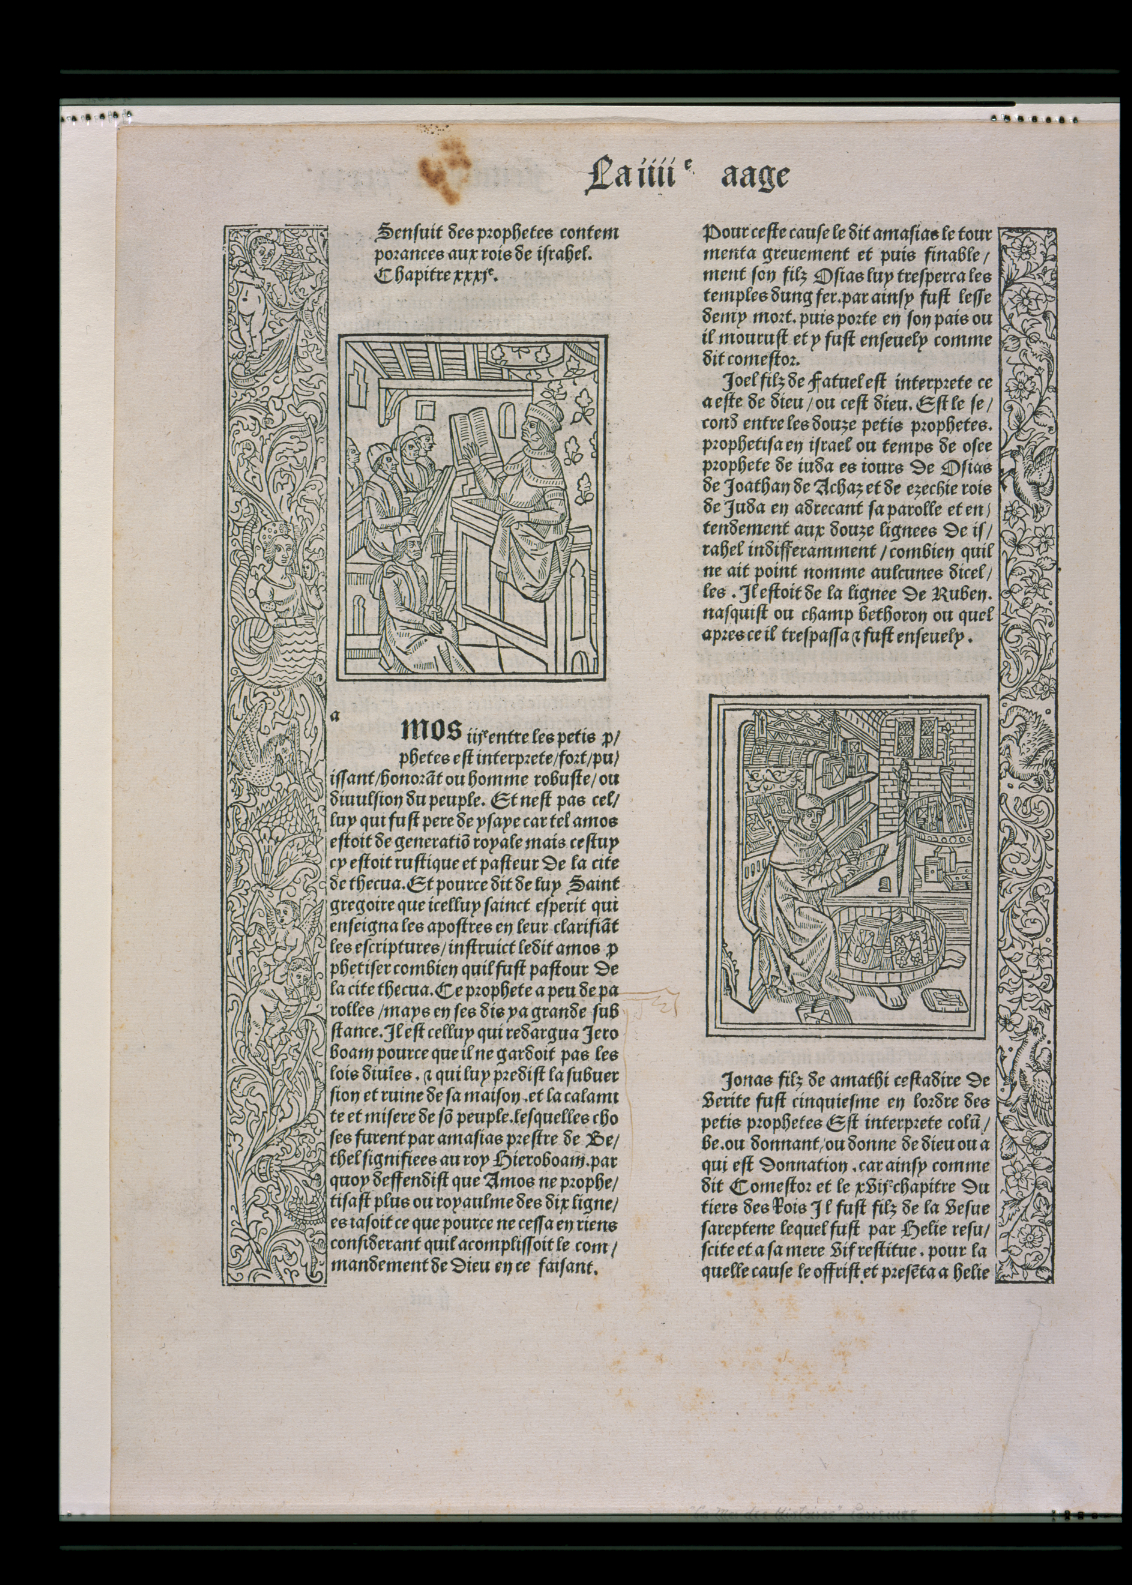 La iiii e aage
Sensuit des prophetes contem
porances aux rois de israhel.
Chapitre xxxie.
a
mos iiie entre les petis p/
phetes est interprete/fort/pu/
issant/honorāt ou homme robuste/ou
diuulsion du peuple. Et nest pas cel/
luy qui fust pere de ysaye car tel amos
estoit de generatiō royale mais cestuy
cy estoit rustique et pasteur De la cite
de thecua. Et pource dit de luy Saint
gregoire que icelluy sainct esperit qui
enseigna les apostres en leur clarifiāt
les escriptures/instruict ledit amos p
phetiser combien quil fust pastour De
la cite thecua. Ce prophete a peu de pa
rolles/mays en ses dis ya grande sub
stance. Il est celluy qui redargua Jero
boam pource que il ne gardoit pas les
lois diuīes. ⁊ qui luy predist la subuer
sion et ruine de sa maison.et la calami
te et misere de sō peuple.lesquelles cho
ses furent par amasias prestre de Be/
thel signifiees au roy Hieroboam.par
quoy deffendist que Amos ne prophe/
tisast plus ou royaulme des dix ligne/
es iasoit ce que pource ne cessa en riens
considerant quil acomplissoit le com/
mandement de Dieu en ce faisant.
Pour ceste cause le dit amasias le tour
menta greuement et puis finable/
ment son filz Osias luy tresperca les
temples dung fer.par ainsy fust lesse
demy mort. puis porte en son pais ou
il mourust et y fust enseuely comme
dit comestor.
Joel filz de Fatuel est interprete ce
a este de dieu/ou cest dieu. Est le se/
cond entre les douze petis prophetes.
prophetisa en israel ou temps de osee
prophete de iuda es iours De Osias
de Joathan de Achaz et de ezechie rois
de Juda en adrecant sa parolle et en/
tendement aux douze lignees De is/
rahel indifferamment/combien quil
ne ait point nomme aulcunes dicel/
les. Il estoit de la lignee De Ruben.
nasquist ou champ bethoron ou quel
apres ce il trespassa ⁊ fust enseuely.
Jonas filz de amathi cestadire De
Verite fust cinquiesme en lordre des
petis prophetes Est interprete colū/
be.ou donnant/ou donne de dieu ou a
qui est Donnation.car ainsy comme
dit Comestor et le xvije chapitre Du
tiers des Rois Il fust filz de la Vefue
sareptene lequel fust par Helie resu/
scite et a sa mere Vif restitue. pour la
quelle cause le offrist et presēta a helie